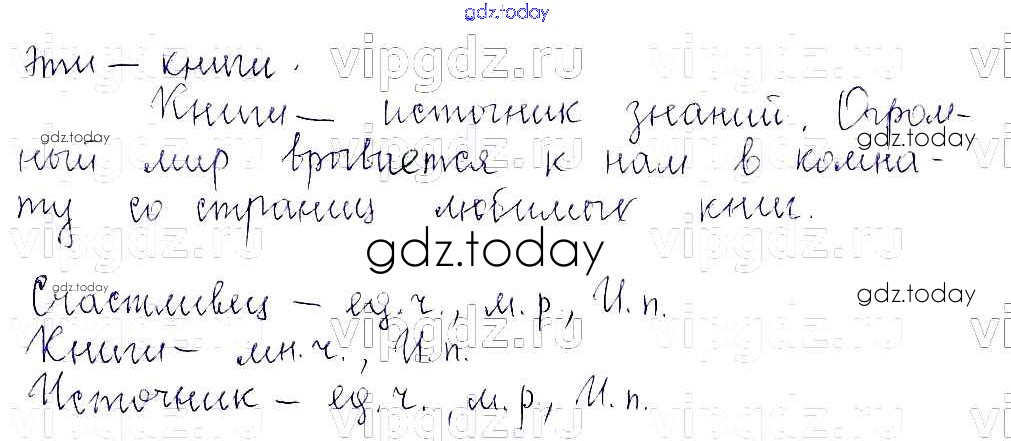 gdz.today
эти — книги.
Книги — источник знаний. Огром-
ный мир врывается к нам в комна-
ту со страниц любимых книг.
gdz.today
Счастливец — ед.ч., м.р., И.п.
Книги — мн.ч., И.п.
Источник — ед.ч., м.р., И.п.